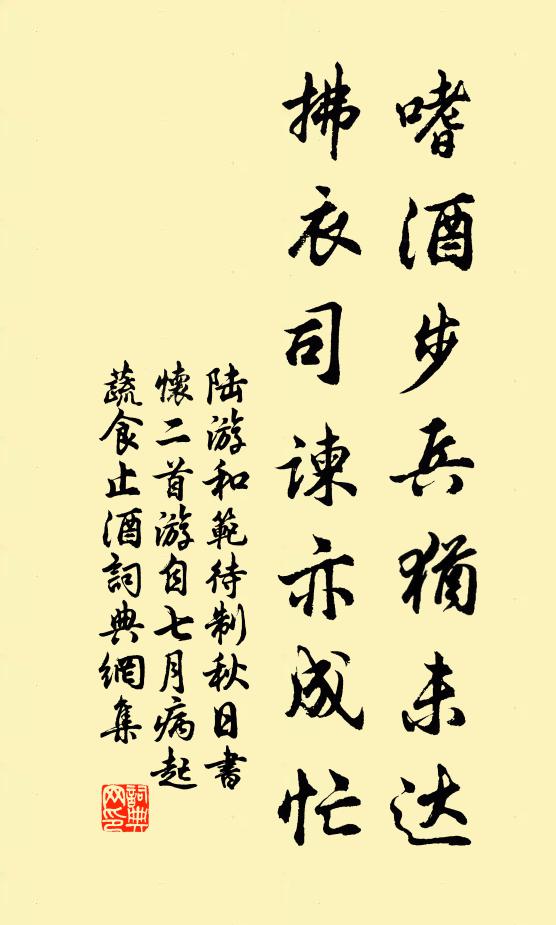 嗜酒步兵犹未达
拂衣司諫亦成忙
陆游和範待制秋日書
懷二首游自七月病起
蔬食止酒詞典網集
詞典网印